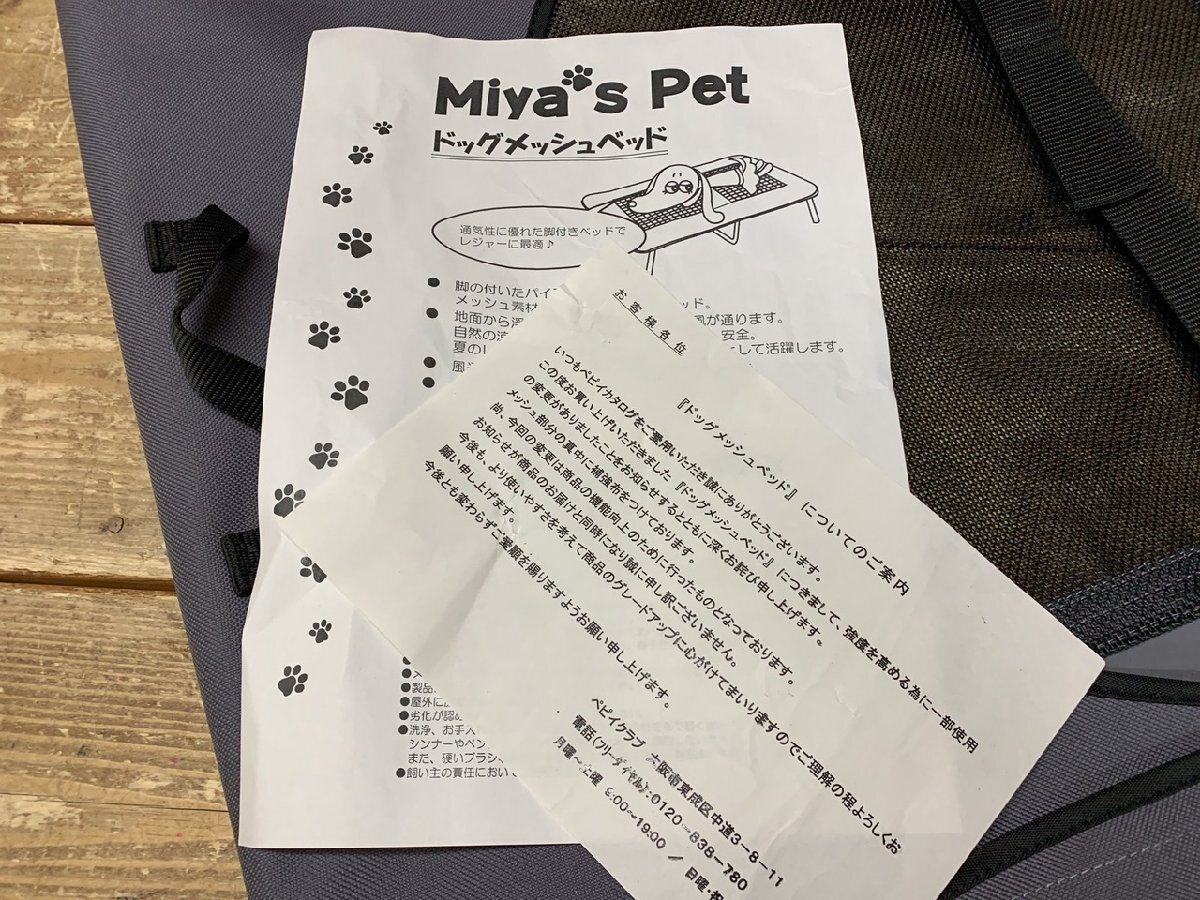 Miya's Pet
ドッグメッシュベッド
通気性に優れた脚付きベッドで
レジャーに最適♪
● 脚の付いたパイ ッド。
メッシュ素材
● 地面から 風が通ります。
自然の 安全。
夏の して活躍します。
●
●
●
●製品
●屋外に
●劣化が認め
●洗浄、お手入
シンナーやベン
また、硬いブラシ
●飼い主の責任におい
お客様各位
『ドッグメッシュベッド』についてのご案内
いつもペピイカタログをご愛用いただき誠にありがとうございます。
この度お買い上げいただきました『ドッグメッシュベッド』につきまして、強度を高める為に一部使用
の変更がありましたことをお知らせするとともに深くお詫び申し上げます。
メッシュ部分の真中に補強布をつけております。
尚、今回の変更は商品の機能向上のために行ったものとなっております。
お知らせが商品のお届けと同時になり誠に申し訳ございません。
今後も、より使いやすさを考えて商品のグレードアップに心がけてまいりますのでご理解の程よろしくお
願い申し上げます。
今後とも変わらずご愛顧を賜りますようお願い申し上げます。
ペピイクラブ 大阪市東成区中道3-8-11
電話(フリーダイヤル):0120-838-780
月曜~土曜 9:00~19:00 / 日曜・祝